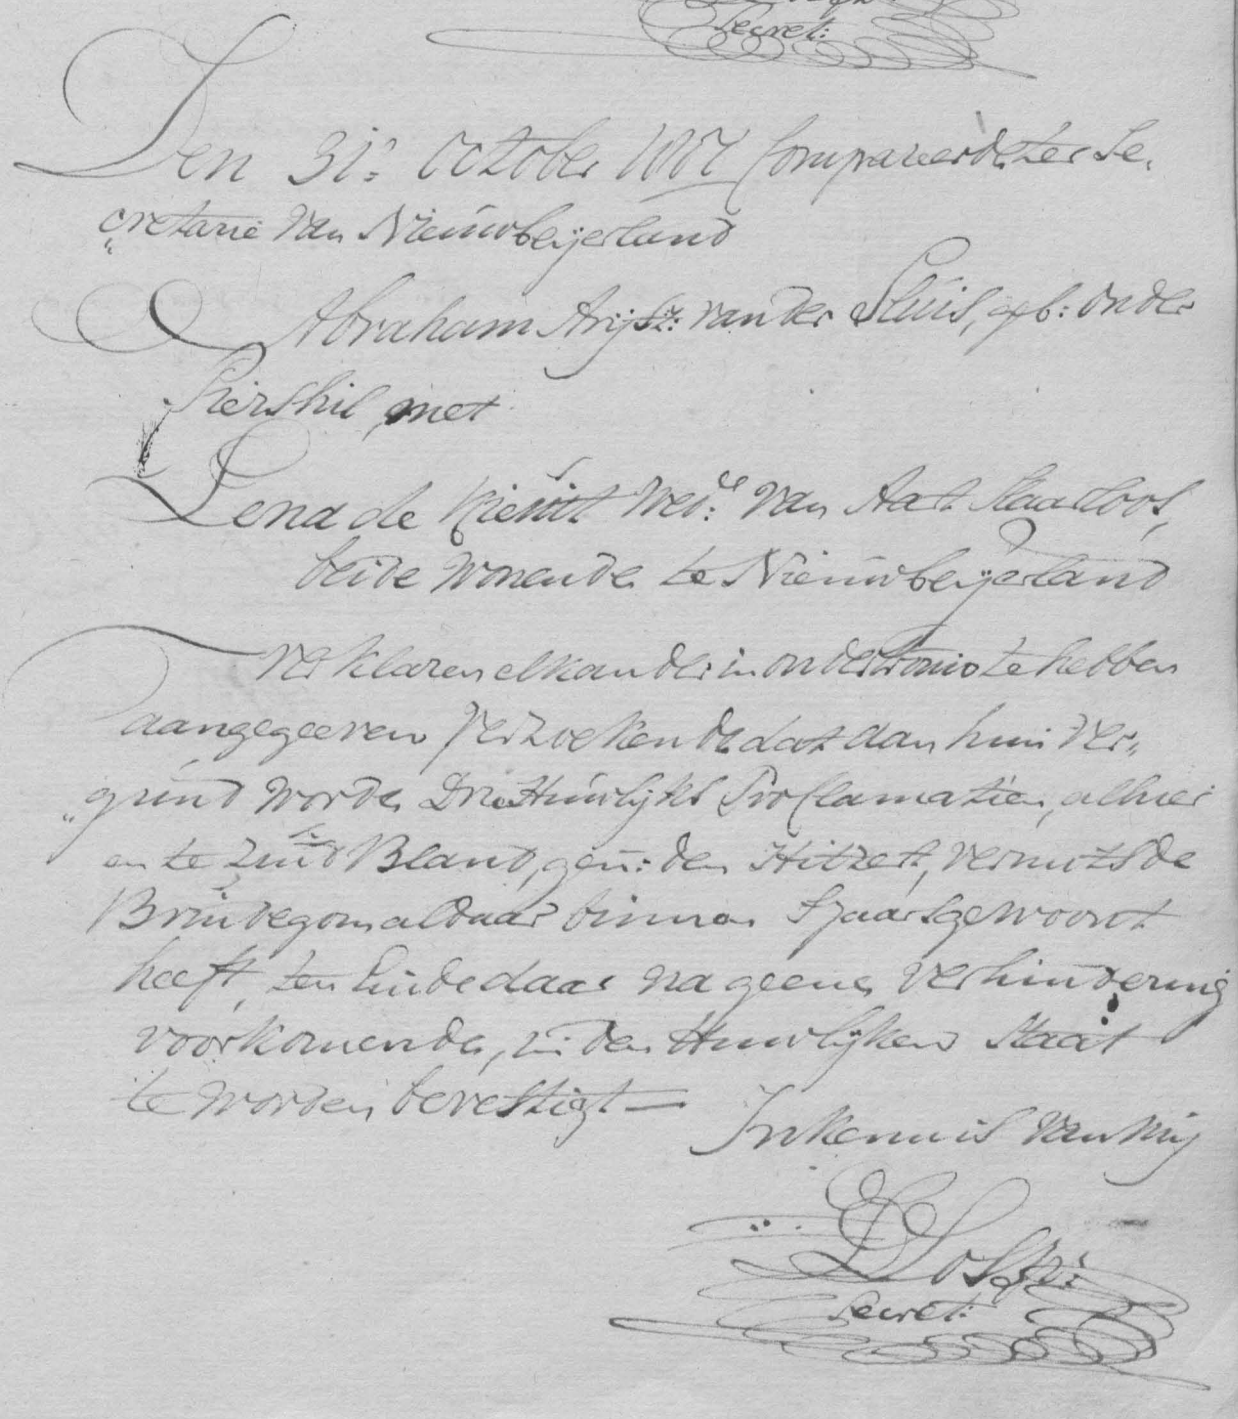 Secret:
Den 31e October 1807 Compareerde ter Se„
„cretarie van Nieuwbeijerland
Abraham Arijsz: van der Sluis, geb: onder
Piershil, met
Lena de Kievit Wede: van Aart Slaatloos,
beide wonende te Nieuwbeijerland
Verklaren elkander in ondertrouw te hebben
aangegeeven Verzoekende dat aan hun ver„
„gund worde Drie Huwlijks Proclamatien, alhier
en te Zuid Bland, gen: den Hitzert, vermits de
Bruidegom aldaar binnen 's jaars gewoont
heeft, ten Einde daar na geene verhindering
voorkomende, in den Huwlijken Staat
te worden bevestigt —
In kennis van mij
Secret: